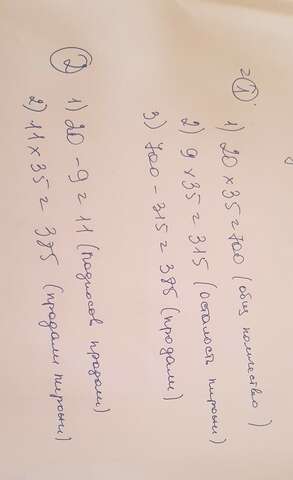 ①
1) 20 × 35 = 700 (общ количество)
2) 9 × 35 = 315 (осталось пирожн)
3) 700 - 315 = 385 (продали)
②
1) 20 - 9 = 11 (подносов продали)
2) 11 × 35 = 385 (продали пирожн)